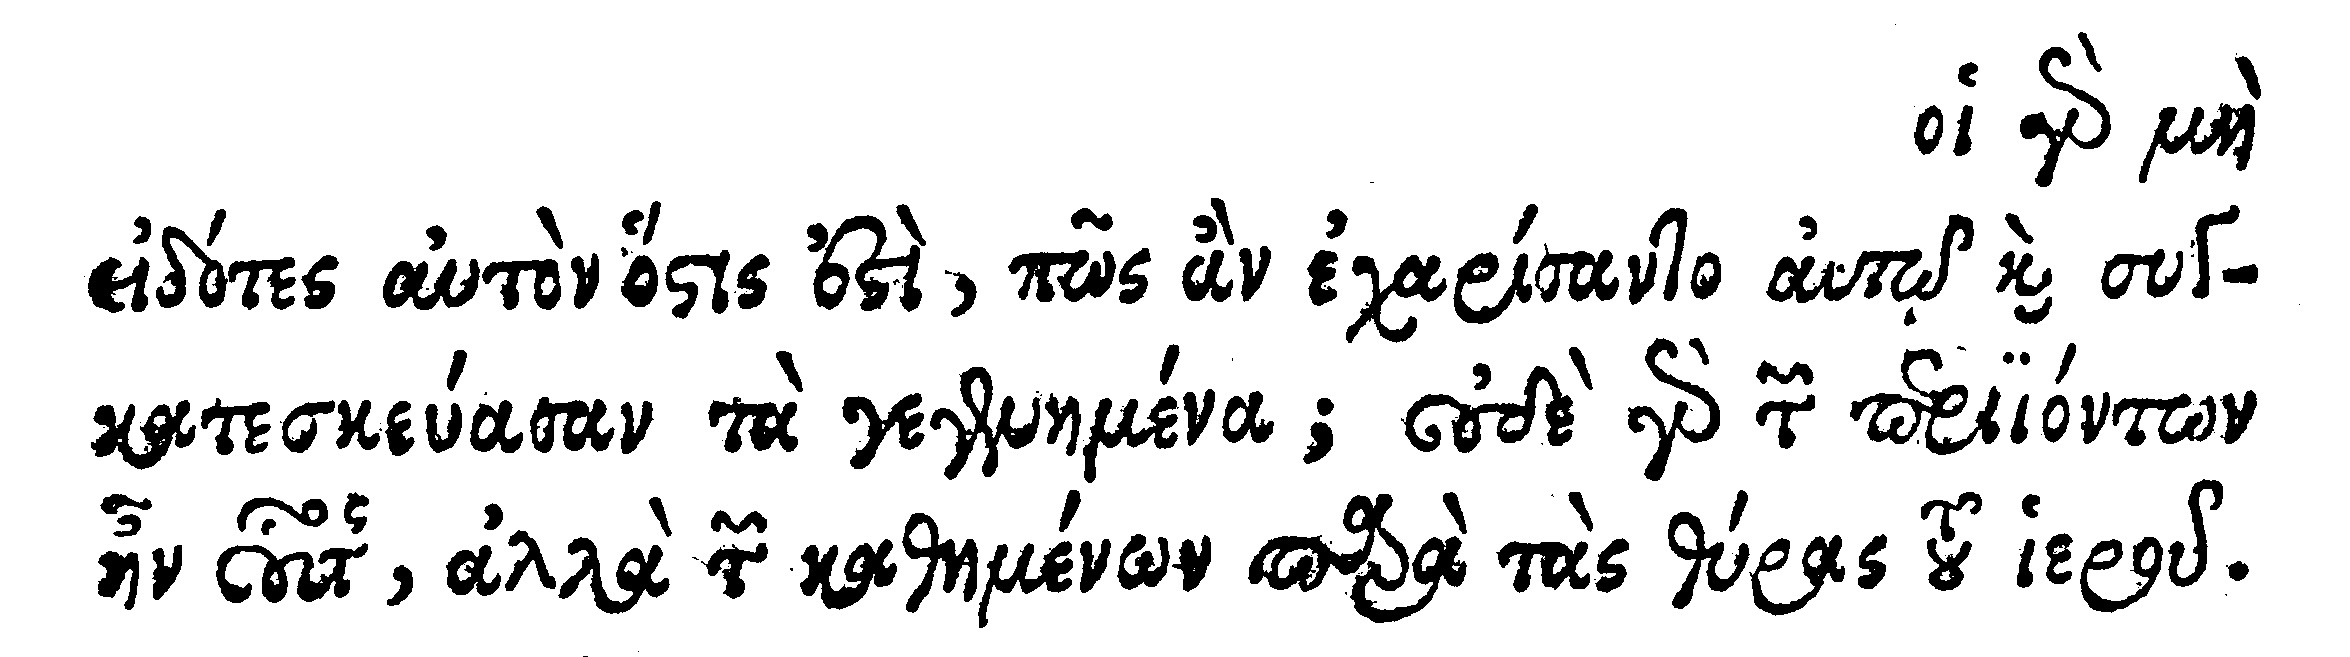 οἱ γὰρ μὴ
εἰδότες αὐτὸν ὅστις ἐστὶ, πῶς ἂν ἐχαρίσαντο αὐτῷ καὶ συγ-
κατεσκεύασαν τὰ γεγενημένα; οὐδὲ γὰρ τῶν περιϊόντων
ἦν οὗτος, ἀλλὰ τῶν καθημένων παρὰ τὰς θύρας τοῦ ἱεροῦ.